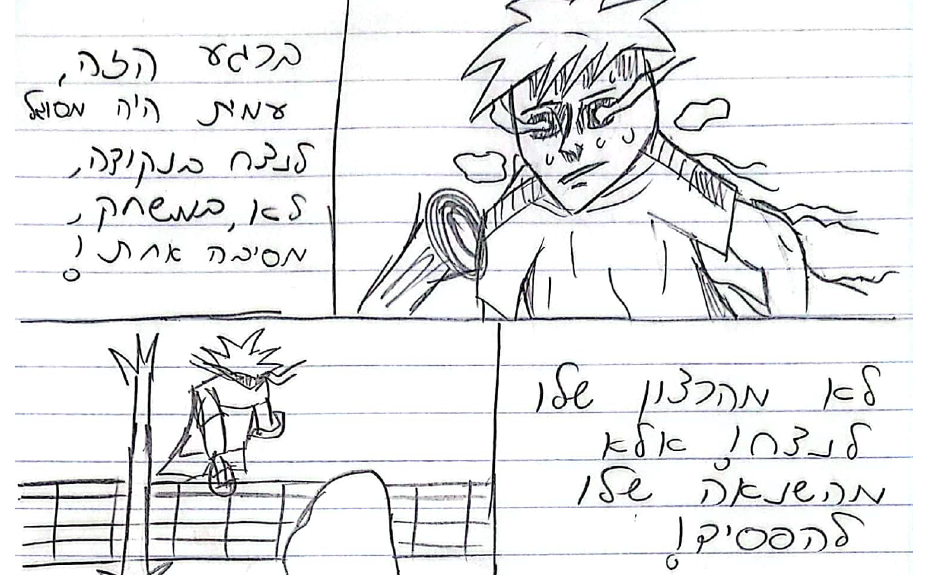 ברגע הזה,
עמית היה מסוגל
לנצח בנקודה,
לא, במשחק,
מסיבה אחת!
לא מהרצון שלו
לנצח! אלא
מהשנאה שלו
להפסיד!